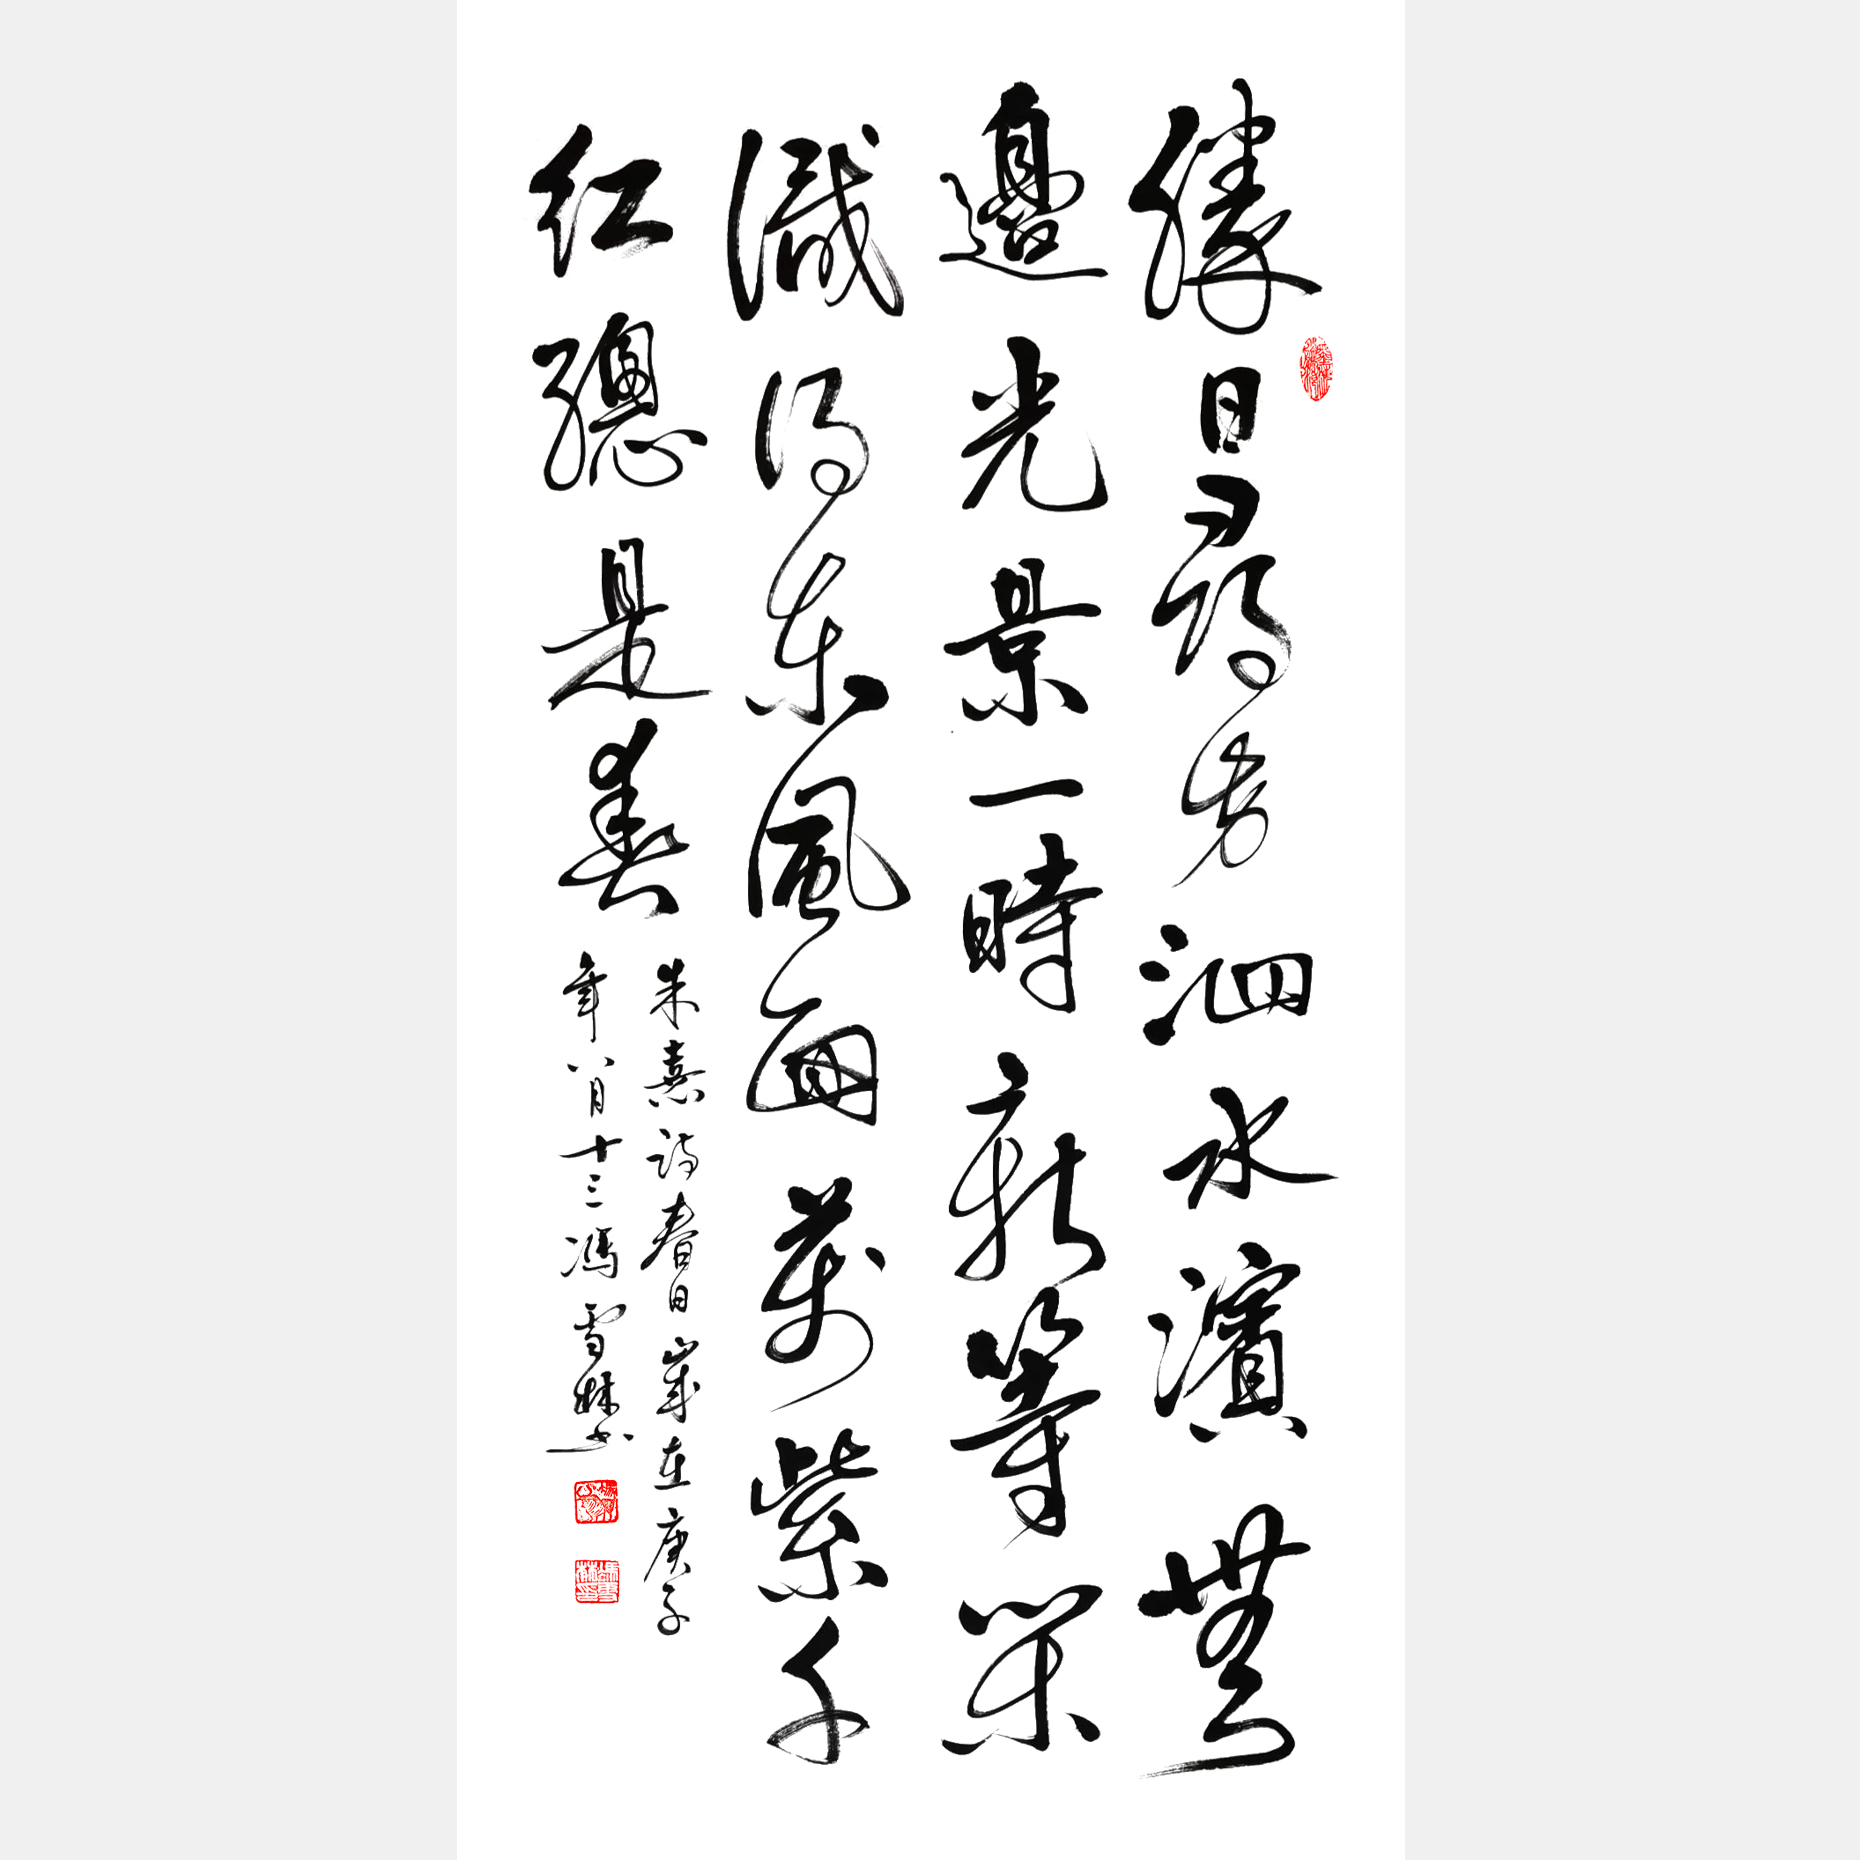 勝日尋芳泗水濱無
邊光景一時新等閑
識得東風面萬紫千
紅總是春
朱熹詩春日歲在庚子
年八月十三馮雪林书